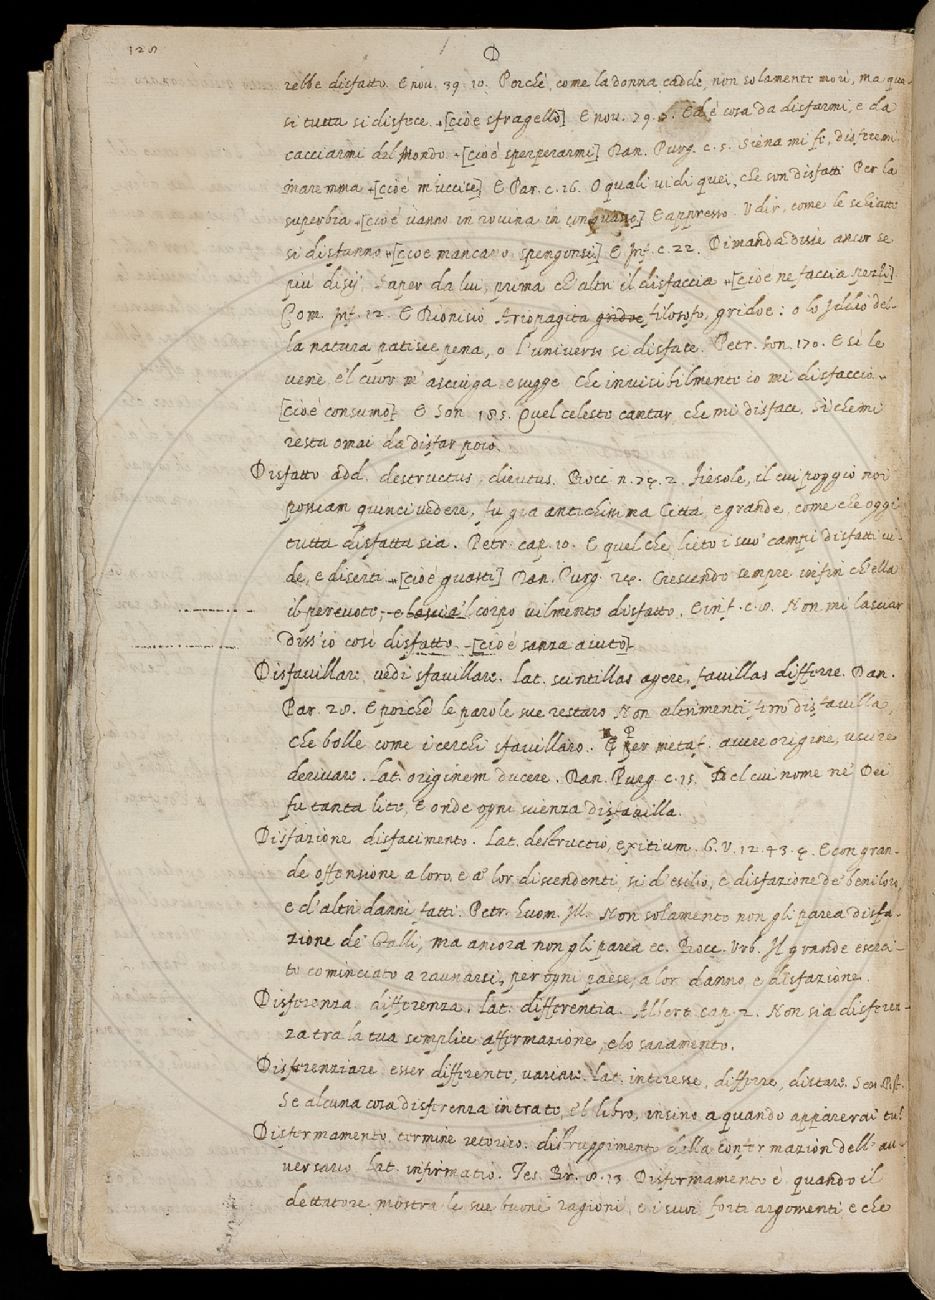 128
D
rebbe disfatto. E nou. 39. 10. Perchè, come la donna cadde, non solamente morì, ma qua-
si tutta si disfece. +[cioè sfragellò] E nou. 79. Ed è cosa da disfarmi, e da
cacciarmi del Mondo +[cioè sperperarmi] Dan. Purg. c. 5. Siena mi fe, disfecemi
maremma +[cioè m'uccise] E Par. c. 16. O quali vidi quei, che son disfatti Per la
superbia +[cioè vanno in rovina in conquasso] E appresso. Vdir, come le schiatte
si disfanno +[cioè mancano spengonsi] E Inf. c. 22. Dimanda disse ancor se
più disij, Saper da lui, prima ch'altri il disfaccia +[cioè ne faccia pezzi]
Com. Inf. 12. E Dionisio Ariopagita gridoe filosofo, gridoe: o lo Iddio del-
la natura patisce pena, o l'universo si disface. Petr. Son. 170. E se le
vene e'l cuor m'asciuga e sugge Che invisibilmente io mi disfaccio. +
[cioè consumo] E Son. 185. Quel celeste cantar, che mi disface, Sì che mi
resta omai da disfar poco.
Disfatto add. destructus, dirutus. Bocc. n. 74. 2. Fiesole, il cui poggio noi
possiam quinci vedere, fu già antichissima Città, e grande, come che oggi
tutta disfatta sia. Petr. cap. 10. E quel che lieto i suo' campi disfatti vi-
de, e diserti +[cioè guasti] Dan. Purg. 24. Crescendo sempre infin ch'ella
il percuote, e lascia'l corpo vilmente disfatto. E inf. c. 8. Non mi lasciar
diss'io così disfatto +[cioè sanza aiuto]
Disfavillare vedi sfavillare. Lat. scintillas agere, favillas differre. Dan.
Par. 28. E poichè le parole sue restaro Non altrimenti ferro disfavilla,
che bolle come i cerchi sfavillaro. E per metaf. avere origine, uscire
derivare. Lat. originem ducere. Dan. Purg. c. 15. Del cui nome ne' Dei
fu tanta lite, E onde ogni scienza disfavilla.
Disfazione disfacimento. Lat. destructio, exitium. G. V. 12. 43. 4. E con gran-
de offensione a loro, e a' lor discendenti, si d'esilio, e disfazione de' beni loro,
e d'altri danni fatti. Petr. huom. Ill. Non solamente non gli parea disfa-
zione de' Galli, ma ancora non gli parea ec. Bocc. Urb. Il grande eserci-
to cominciato a raunarsi, per ogni paese, a lor danno e disfazione.
Disferenza differenza. Lat. differentia. Albert. cap. 2. Non sia disferen-
za tra la tua semplice affermazione, e lo saramento.
Disferenziare esser differente, variare. Lat. interesse, differre, distare. Sen. Pist.
Se alcuna cosa disferenza intra te, e'l libro, insino a quando apparerai tu?
Disfermamento, termine retorico. distruggimento della confermazion dell'av-
versario Lat. infirmatio. Tes. Br. 8. 13 Disfermamento è quando il
dettatore mostra le sue buone ragioni, e i suoi forti argomenti e che